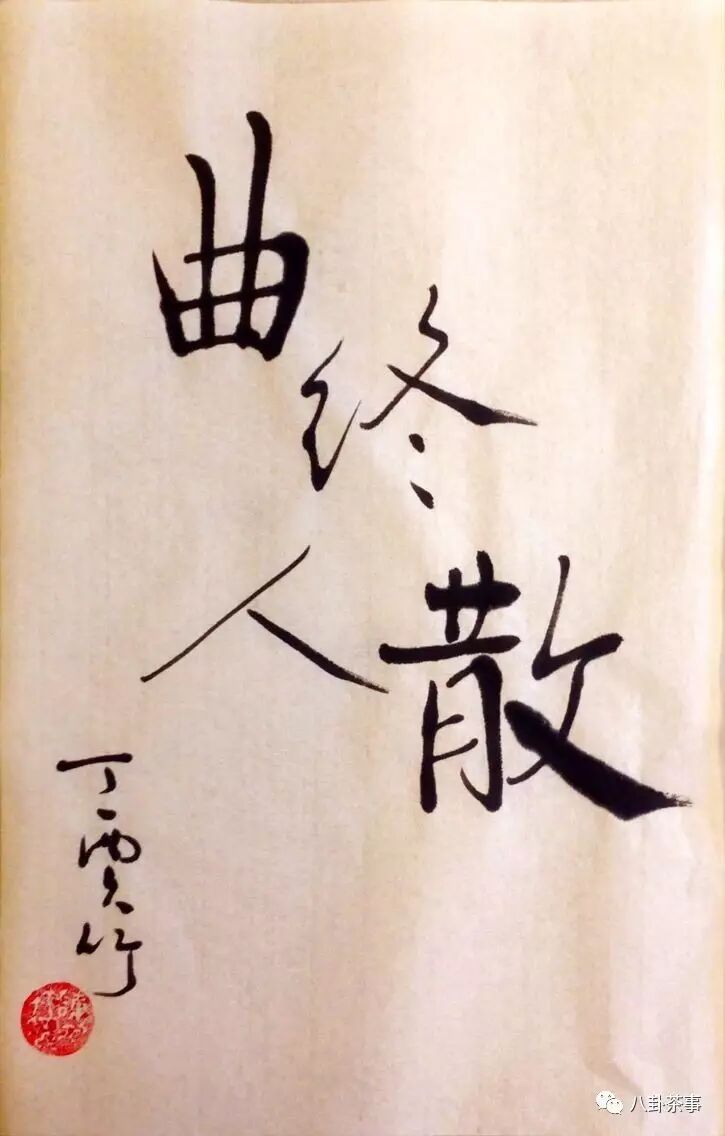 曲终
人散
丁酉
八卦茶事